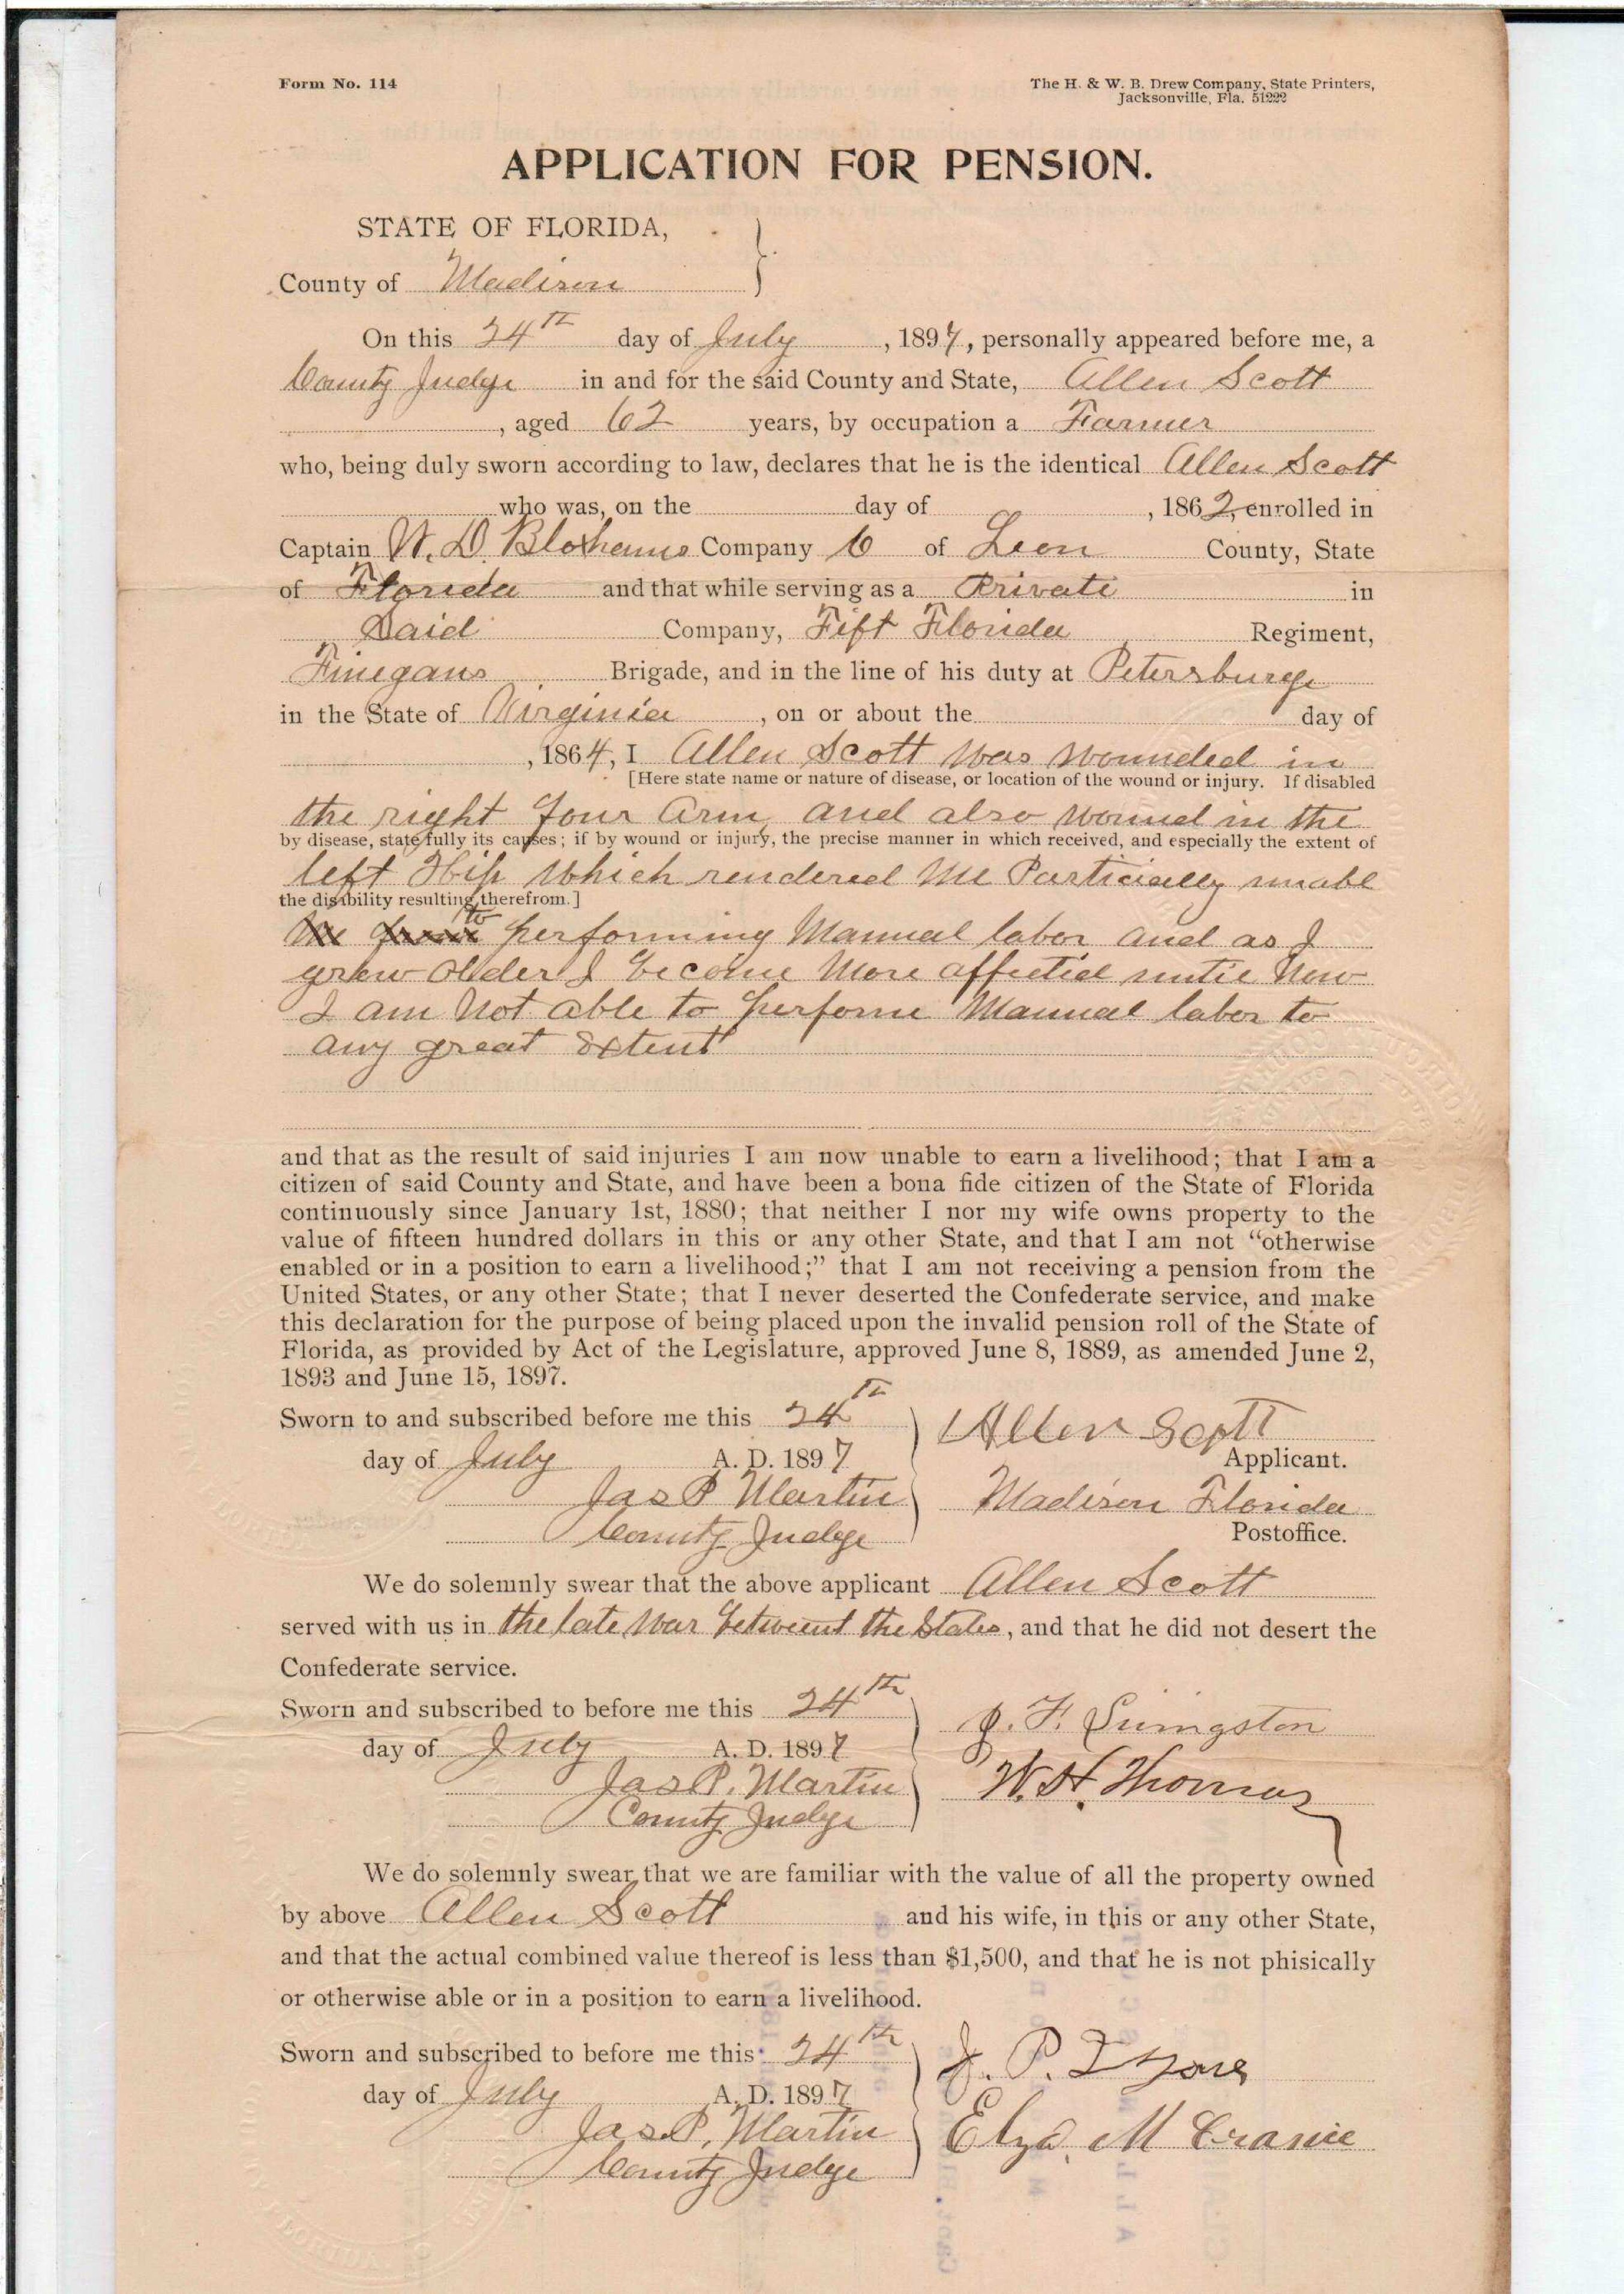 Form No. 114
The H. & W. B. Drew Company, State Printers,
Jacksonville, Fla. 51222
APPLICATION FOR PENSION.
STATE OF FLORIDA,
County of Madison
On this 24th day of July , 1897, personally appeared before me, a
County Judge in and for the said County and State, Allen Scott
, aged 62 years, by occupation a Farmer
who, being duly sworn according to law, declares that he is the identical Allen Scott
who was, on the day of , 1862, enrolled in
Captain W. D. Bloxhams Company C of Leon County, State
of Florida and that while serving as a Private in
Said Company, Fift Florida Regiment,
Finegans Brigade, and in the line of his duty at Petersburge
in the State of Virginia , on or about the day of
, 1864, I Allen Scott was wounded in
[Here state name or nature of disease, or location of the wound or injury. If disabled
the right four arm, and also wound in the
by disease, state fully its causes; if by wound or injury, the precise manner in which received, and especially the extent of
left Hip which rendered me Particially unabl
the disibility resulting therefrom.]
to performing Manual labor and as I
grow older I become more affected until now
I am not able to perform Manual labor to
any great extent
and that as the result of said injuries I am now unable to earn a livelihood; that I am a
citizen of said County and State, and have been a bona fide citizen of the State of Florida
continuously since January 1st, 1880; that neither I nor my wife owns property to the
value of fifteen hundred dollars in this or any other State, and that I am not “otherwise
enabled or in a position to earn a livelihood;” that I am not receiving a pension from the
United States, or any other State; that I never deserted the Confederate service, and make
this declaration for the purpose of being placed upon the invalid pension roll of the State of
Florida, as provided by Act of the Legislature, approved June 8, 1889, as amended June 2,
1893 and June 15, 1897.
Sworn to and subscribed before me this 24th
Allen Scott
Applicant.
day of July A. D. 1897
Jas P Martin
Madison Florida
County Judge
Postoffice.
We do solemnly swear that the above applicant Allen Scott
served with us in the late war betweent the States, and that he did not desert the
Confederate service.
Sworn and subscribed to before me this 24th
J. F. Livingston
day of July A. D. 1897
Jas P. Martin
W. H. Thomas
County Judge
We do solemnly swear that we are familiar with the value of all the property owned
by above Allen Scott and his wife, in this or any other State,
and that the actual combined value thereof is less than $1,500, and that he is not phisically
or otherwise able or in a position to earn a livelihood.
Sworn and subscribed to before me this 24th
J. P.
day of July A. D. 1897
Jas. P. Martin
County Judge